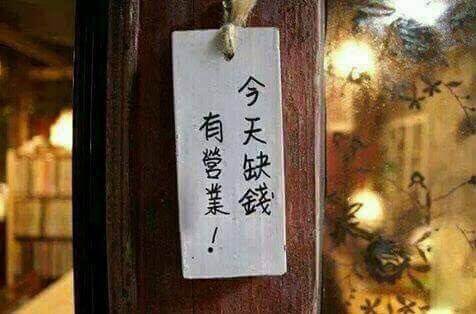 今天缺錢
有營業！